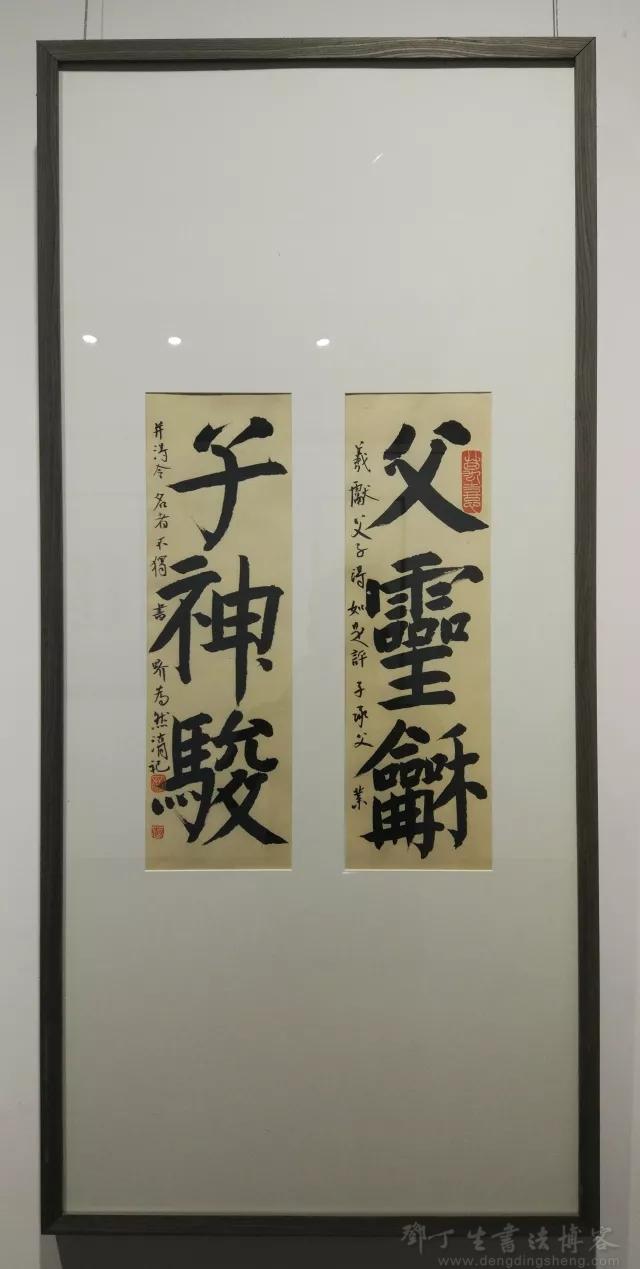 父靈龢
羲獻父子得如是評子承父業
子神駿
并得令名者不獨書畍為然記
鄧丁生書法博客
www.dengdingsheng.com